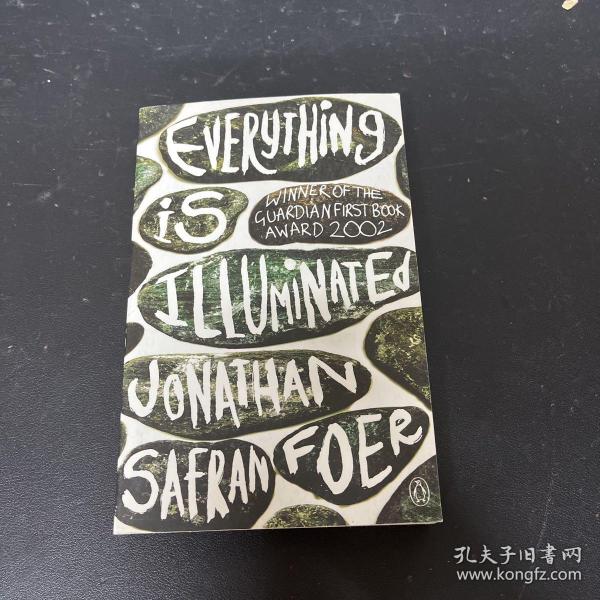 EVERYTHING
iS
WINNER OF THE
GUARDIAN FIRST BOOK
AWARD 2002
ILLUMiNATEd
JONATHAN
SAFRAN FOER
孔夫子旧书网
www.kongfz.com